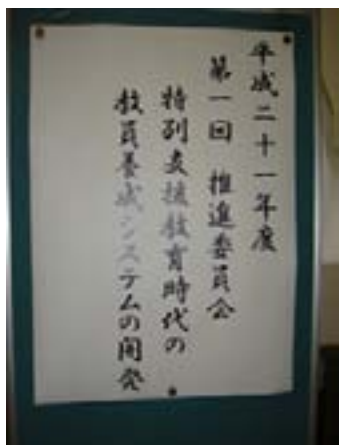 平成二十一年度
第一回 推進委員会
特別支援教育時代の
教員養成システムの開発